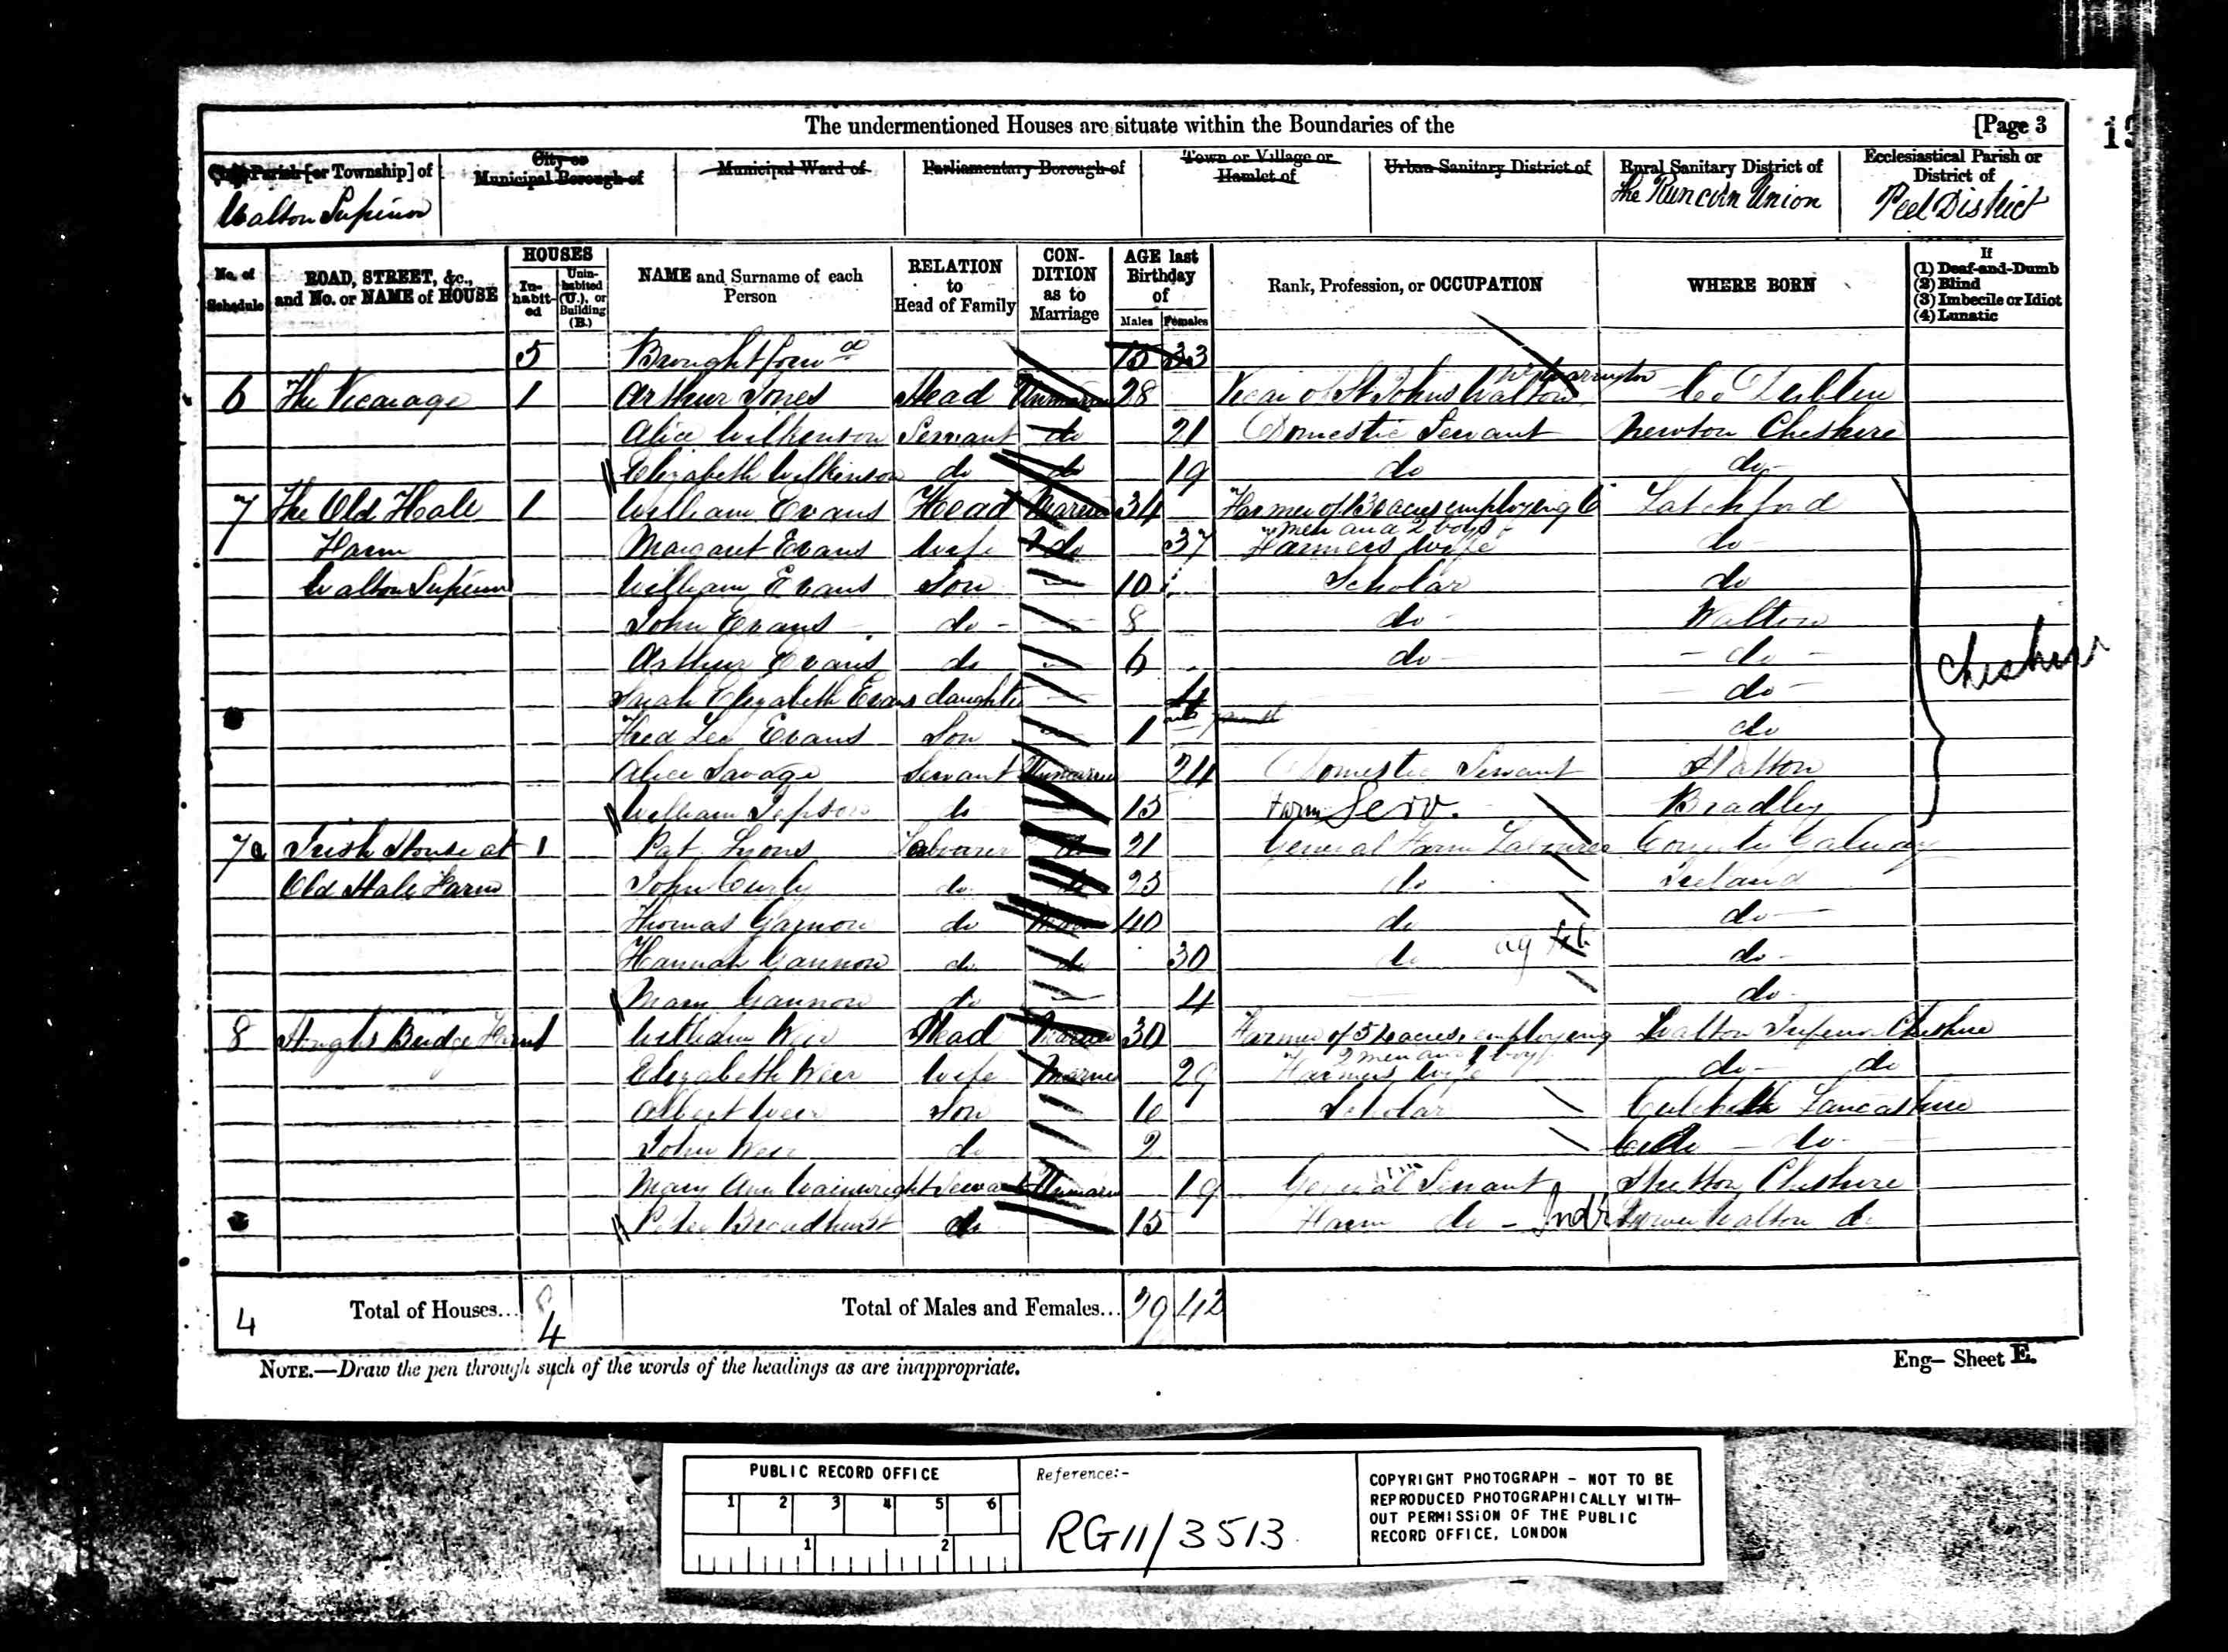 The undermentioned Houses are situate within the Boundaries of the [Page 3
Parish [or Township] of
City or Municipal Borough of
Municipal Ward of
Parliamentary Borough of
Town or Village or Hamlet of
Urban Sanitary District of
Rural Sanitary District of
Ecclesiastical Parish or District of
Walton Superior
The Runcorn Union
Peel District
No. of Schedule
ROAD, STREET, &c., and No. or NAME of HOUSE
HOUSES
Inhabited
Uninhabited (U.), or Building (B.)
NAME and Surname of each Person
RELATION to Head of Family
CONDITION as to Marriage
AGE last Birthday of
Males Females
Rank, Profession, or OCCUPATION
WHERE BORN
If
(1) Deaf-and-Dumb
(2) Blind
(3) Imbecile or Idiot
(4) Lunatic
5 Brought forwd 15 33
6 The Vicarage 1 Arthur Jones Head Unmarried 28 Vicar of St Johns Walton Nr Warrington Co Dublin
Alice Wilkinson Servant do 21 Domestic Servant Newton Cheshire
Elizabeth Wilkinson do do 19 do do
7 The Old Hale 1 William Evans Head 34 Farmer of 130 acres employing 6 Latchford
men and 2 boys
Farm Margaret Evans Wife do 37 Farmers Wife do
Walton Superior William Evans Son 10 Scholar do
John Evans do 8 do Walton
Arthur Evans do 6 do do
Sarah Elizabeth Evans daughter 4 do
Cheshire
Fred Lee Evans Son 1 do
Alice Savage Servant 24 Domestic Servant Hatton
William Jepson do 15 Farm Serv. Bradley
7a Irish House at 1 Pat Lyons Labourer do 21 General Farm Labourer County Galway
Old Hale Farm John Curly do do 25 do Ireland
Thomas Gannon do 40 do do
Hannah Gannon do do 30 do ag lab do
Mary Gannon do 4 do
8 Bridge Farm 1 William Weir Head 30 Farmer of acres employing Walton Superior Cheshire
2 men and 1 boy
Elizabeth Weir Wife Married 29 Farmers Wife do do
Albert Weir Son 6 Scholar Culcheth Lancashire
John Weir do 2 do do
Mary Ann Wainwright Servant 19 General Servant Cheshire
Peter Broadhurst do 15 Farm do Ind Lower Walton do
4 Total of Houses... 4 Total of Males and Females... 29 42
NOTE.—Draw the pen through such of the words of the headings as are inappropriate.
Eng— Sheet E.
PUBLIC RECORD OFFICE
1 2 3 4 5 6
1 2
Reference:-
RG11/3513
COPYRIGHT PHOTOGRAPH - NOT TO BE
REPRODUCED PHOTOGRAPHICALLY WITH-
OUT PERMISSION OF THE PUBLIC
RECORD OFFICE, LONDON